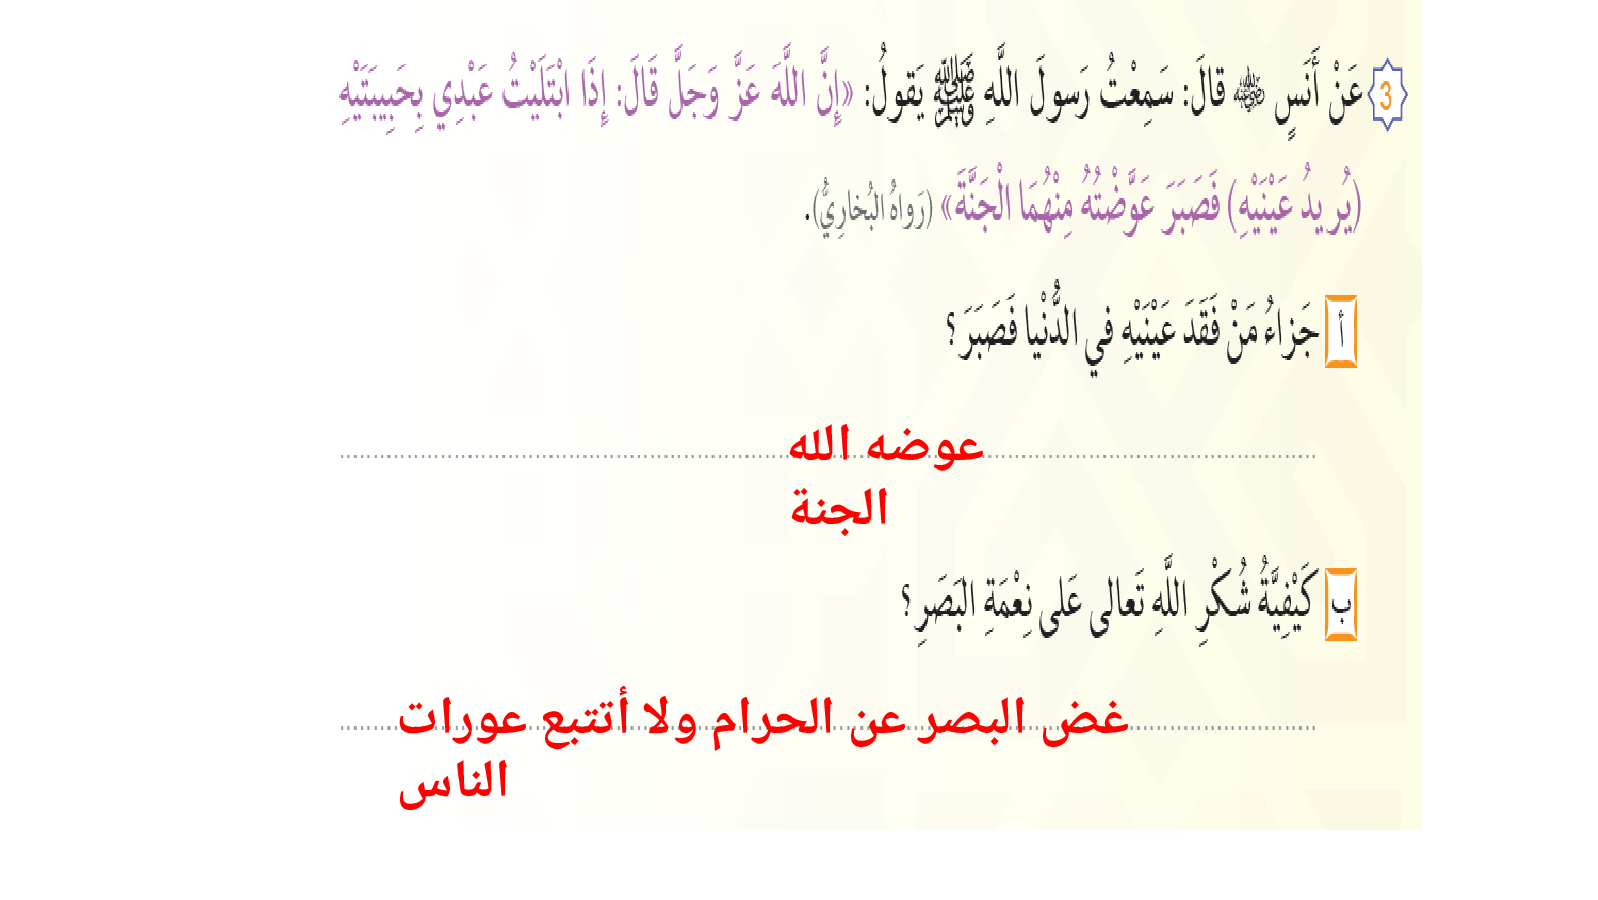 3 عَنْ أَنَسٍ ﵁ قالَ: سَمِعْتُ رَسولَ اللَّهِ ﷺ يَقولُ: «إِنَّ اللَّهَ عَزَّ وَجَلَّ قَالَ: إِذَا ابْتَلَيْتُ عَبْدِي بِحَبِيبَتَيْهِ
(يُرِيدُ عَيْنَيْهِ) فَصَبَرَ عَوَّضْتُهُ مِنْهُمَا الْجَنَّةَ» (رَواهُ البُخارِيُّ).
أ جَزاءُ مَنْ فَقَدَ عَيْنَيْهِ في الدُّنْيا فَصَبَرَ؟
عوضه الله
الجنة
ب كَيْفِيَّةُ شُكْرِ اللَّهِ تَعالى عَلى نِعْمَةِ البَصَرِ؟
غض البصر عن الحرام ولا أتتبع عورات
الناس